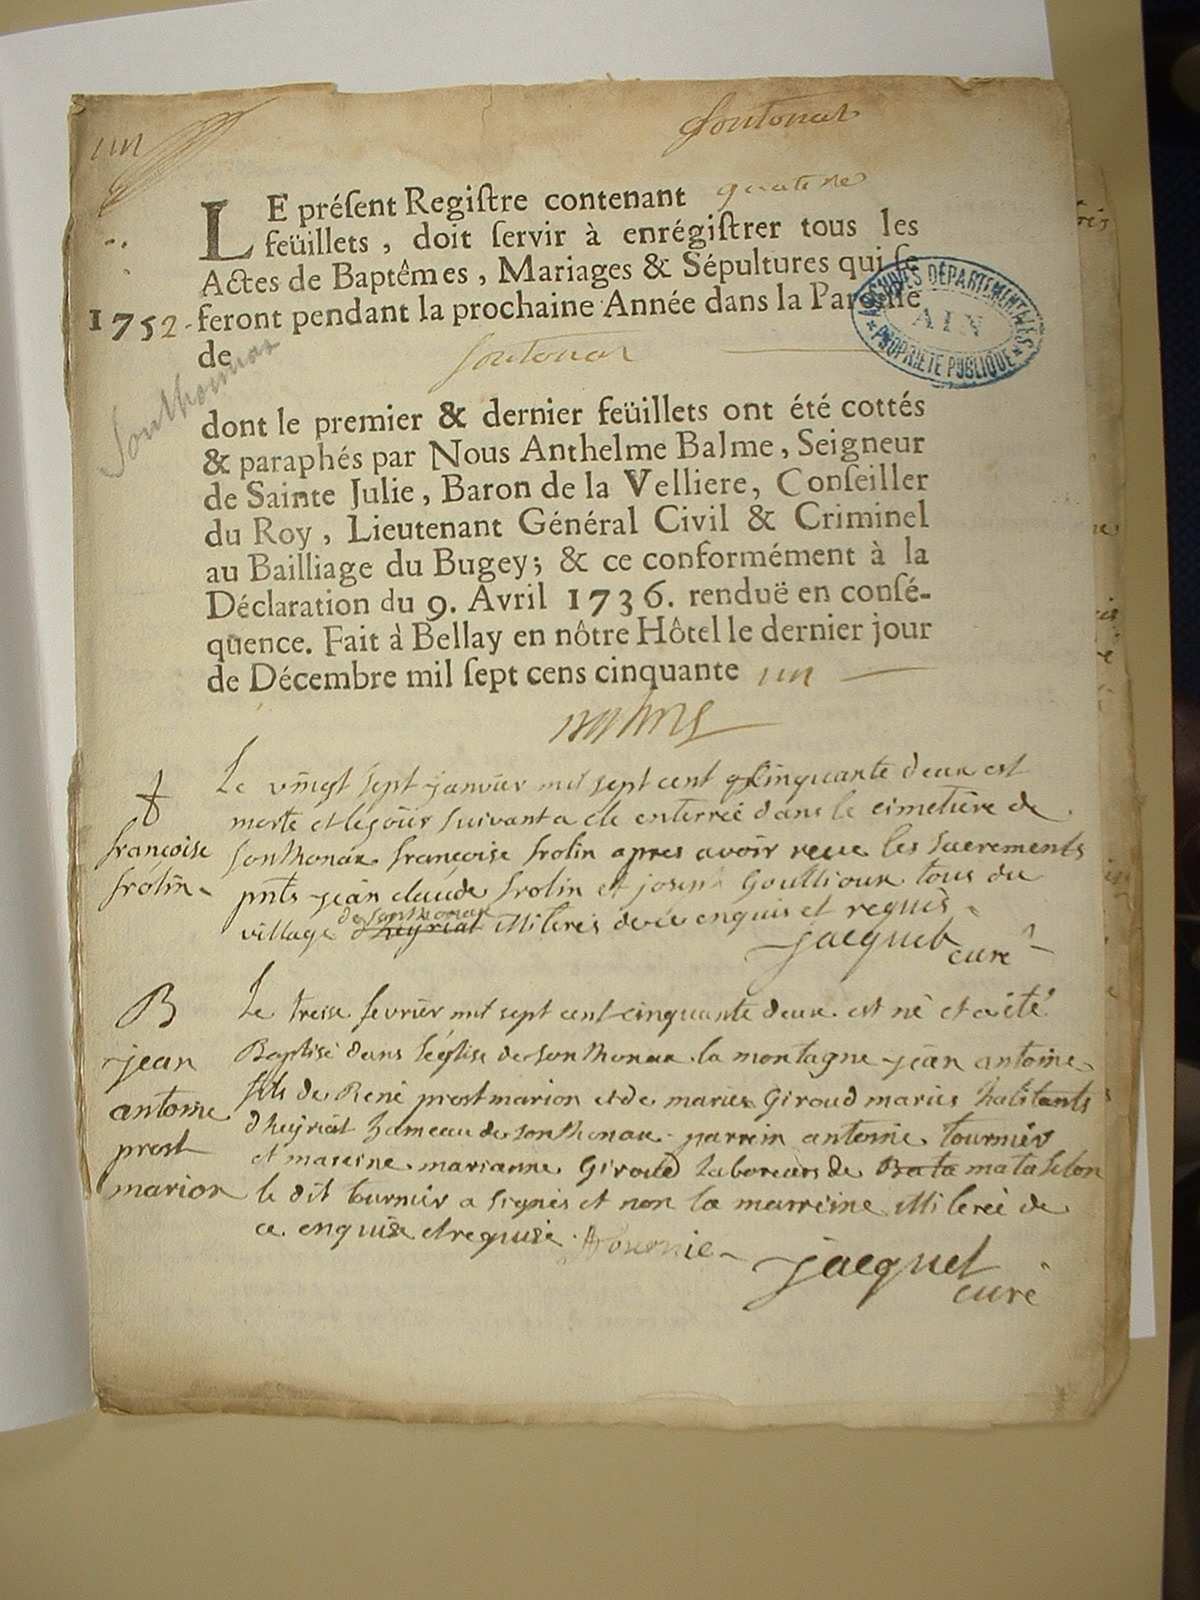 un
soutonat
LE présent Registre contenant quatre
feüillets, doit servir à enrégistrer tous les
Actes de Baptêmes, Mariages & Sépultures qui se
1752 feront pendant la prochaine Année dans la Paroisse
de
soutonat
Sonthonnax
ARCHIVES DÉPARTEMENTALES
AIN
* PROPRIÉTÉ PUBLIQUE *
dont le premier & dernier feüillets ont été cottés
& paraphés par Nous Anthelme Balme, Seigneur
de Sainte Julie, Baron de la Velliere, Conseiller
du Roy, Lieutenant Général Civil & Criminel
au Bailliage du Bugey; & ce conformément à la
Déclaration du 9. Avril 1736. renduë en consé-
quence. Fait à Bellay en nôtre Hôtel le dernier jour
de Décembre mil sept cens cinquante un
françoise
frolin
Le vingt sept janvier mil sept cent cinquante deux est
morte et le jour suivant a ete enterrée dans le cimetiere de
sonthonax françoise frolin apres avoir reçue les sacrements
pnts jean claude frolin et joseph Goullioux tous du
village de sonthonax d'heyriat illiterés de ce enquis et requis
jacquet
curé
B
jean
antoine
prost
marion
Le treise fevrier mil sept cent cinquante deux est né et a été
Baptisé dans l'église de sonthonax la montagne jean antoine
fils de René prost marion et de marie Giroud mariés habitants
d'heyriat hameau de sonthonax parrein antoine tournier
et mareine marianne Giroud laboreurs de Bata matafelon
le dit tournier a signés et non la marreine illiterée de
ce enquise et requise
jacquet
curé